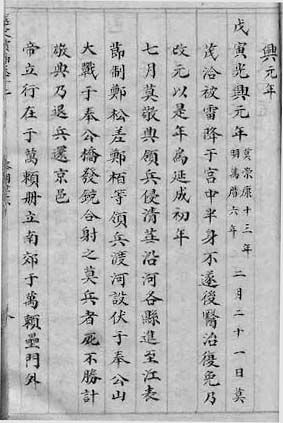 興元年
戊寅光興元年莫崇康十三年明萬曆六年二月二十一日莫
茂洽被雷降于宮中半身不遂後醫治復免乃
改元以是年為延成初年
七月莫敬典領兵侵清華沿河各縣進至江表
節制鄭松差鄭栢等領兵渡河設伏于奉公山
大戰于奉公橋發銃合射之莫兵者死不勝計
敬典乃退兵還京邑
帝立行在于萬賴册立南郊于萬賴壘門外